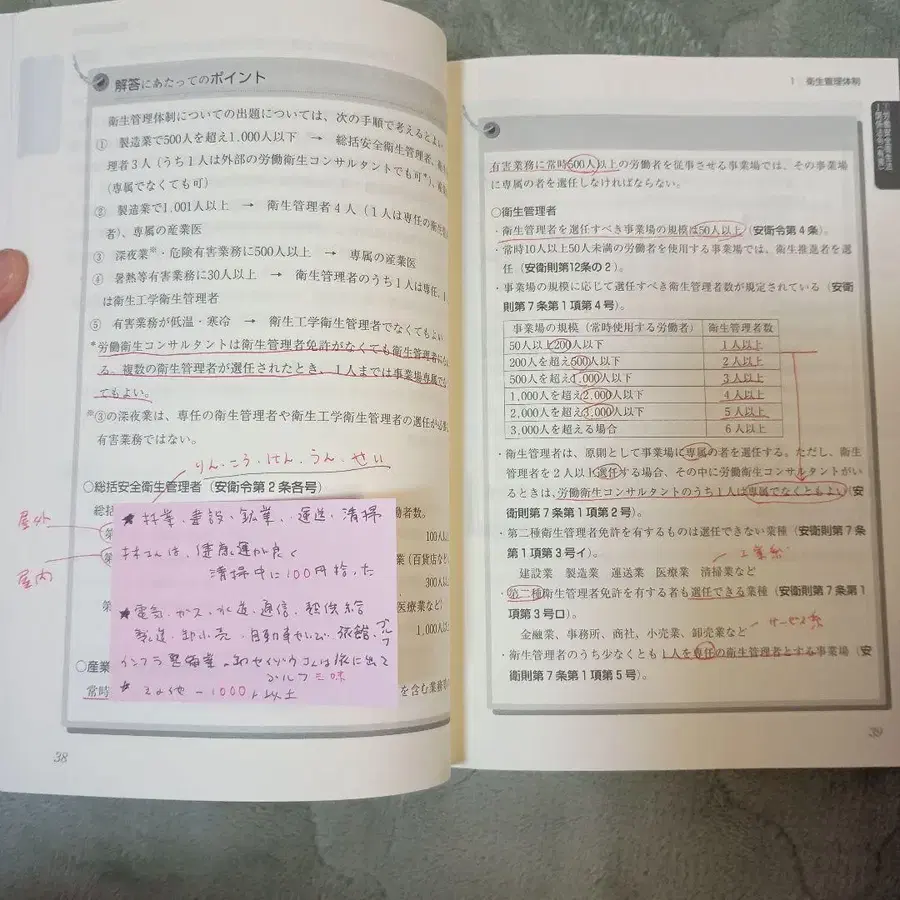 解答にあたってのポイント
衛生管理体制についての出題については、次の手順で考えるとよい
① 製造業で500人を超え1,000人以下 → 総括安全衛生管理者、衛生
理者3人（うち1人は外部の労働衛生コンサルタントでも可*）、
（専属でなくても可）
② 製造業で1,001人以上 → 衛生管理者4人（1人は専任の衛生
者）、専属の産業医
③ 深夜業※・危険有害業務に500人以上 → 専属の産業医
④ 暑熱等有害業務に30人以上 → 衛生管理者のうち1人は専任、1
は衛生工学衛生管理者
⑤ 有害業務が低温・寒冷 → 衛生工学衛生管理者でなくてもよい
*労働衛生コンサルタントは衛生管理者免許がなくても衛生管理者に
る。複数の衛生管理者が選任されたとき、1人までは事業場専属で
てもよい。
※③の深夜業は、専任の衛生管理者や衛生工学衛生管理者の選任が必要
有害業務ではない。
りん・こう・けん・うん・せい
○総括安全衛生管理者（安衛令第2条各号）
総括 働者数。
屋外
第 100人
屋内
第 業（百貨店など
300人
第 医療業など）
1,000人
★林業、建設、鉱業、運送、清掃
林さんは、健康運が良く
清掃中に100円拾った
★電気・ガス・水道・通信・熱供給
製造・卸小売・自動車せいび・旅館・ゴルフ
インフラ整備業
ゴルフ三昧
★その他－1000人以上
○産業
常時 を含む業務
38
1 衛生管理体制
有害業務に常時500人以上の労働者を従事させる事業場では、その事業場
に専属の者を選任しなければならない。
○衛生管理者
・衛生管理者を選任すべき事業場の規模は50人以上（安衛令第4条）。
・常時10人以上50人未満の労働者を使用する事業場では、衛生推進者を選
任（安衛則第12条の2）。
・事業場の規模に応じて選任すべき衛生管理者数が規定されている（安衛
則第7条第1項第4号）。
事業場の規模（常時使用する労働者） 衛生管理者数
50人以上200人以下 1人以上
200人を超え500人以下 2人以上
500人を超え1,000人以下 3人以上
1,000人を超え2,000人以下 4人以上
2,000人を超え3,000人以下 5人以上
3,000人を超える場合 6人以上
・衛生管理者は、原則として事業場に専属の者を選任する。ただし、衛生
管理者を2人以上選任する場合、その中に労働衛生コンサルタントがい
るときは、労働衛生コンサルタントのうち1人は専属でなくともよい（安
衛則第7条第1項第2号）。
・第二種衛生管理者免許を有するものは選任できない業種（安衛則第7条
第1項第3号イ）。
工業系
建設業 製造業 運送業 医療業 清掃業など
・第二種衛生管理者免許を有する者も選任できる業種（安衛則第7条第1
項第3号ロ）。
サービス系
金融業、事務所、商社、小売業、卸売業など
・衛生管理者のうち少なくとも1人を専任の衛生管理者とする事業場（安
衛則第7条第1項第5号）。
39